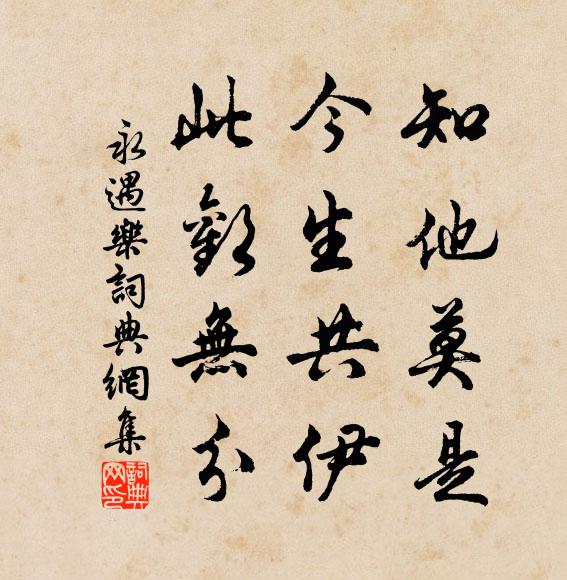 知他莫是
今生共伊
此歡無分
永遇樂詞典網集
詞典网印